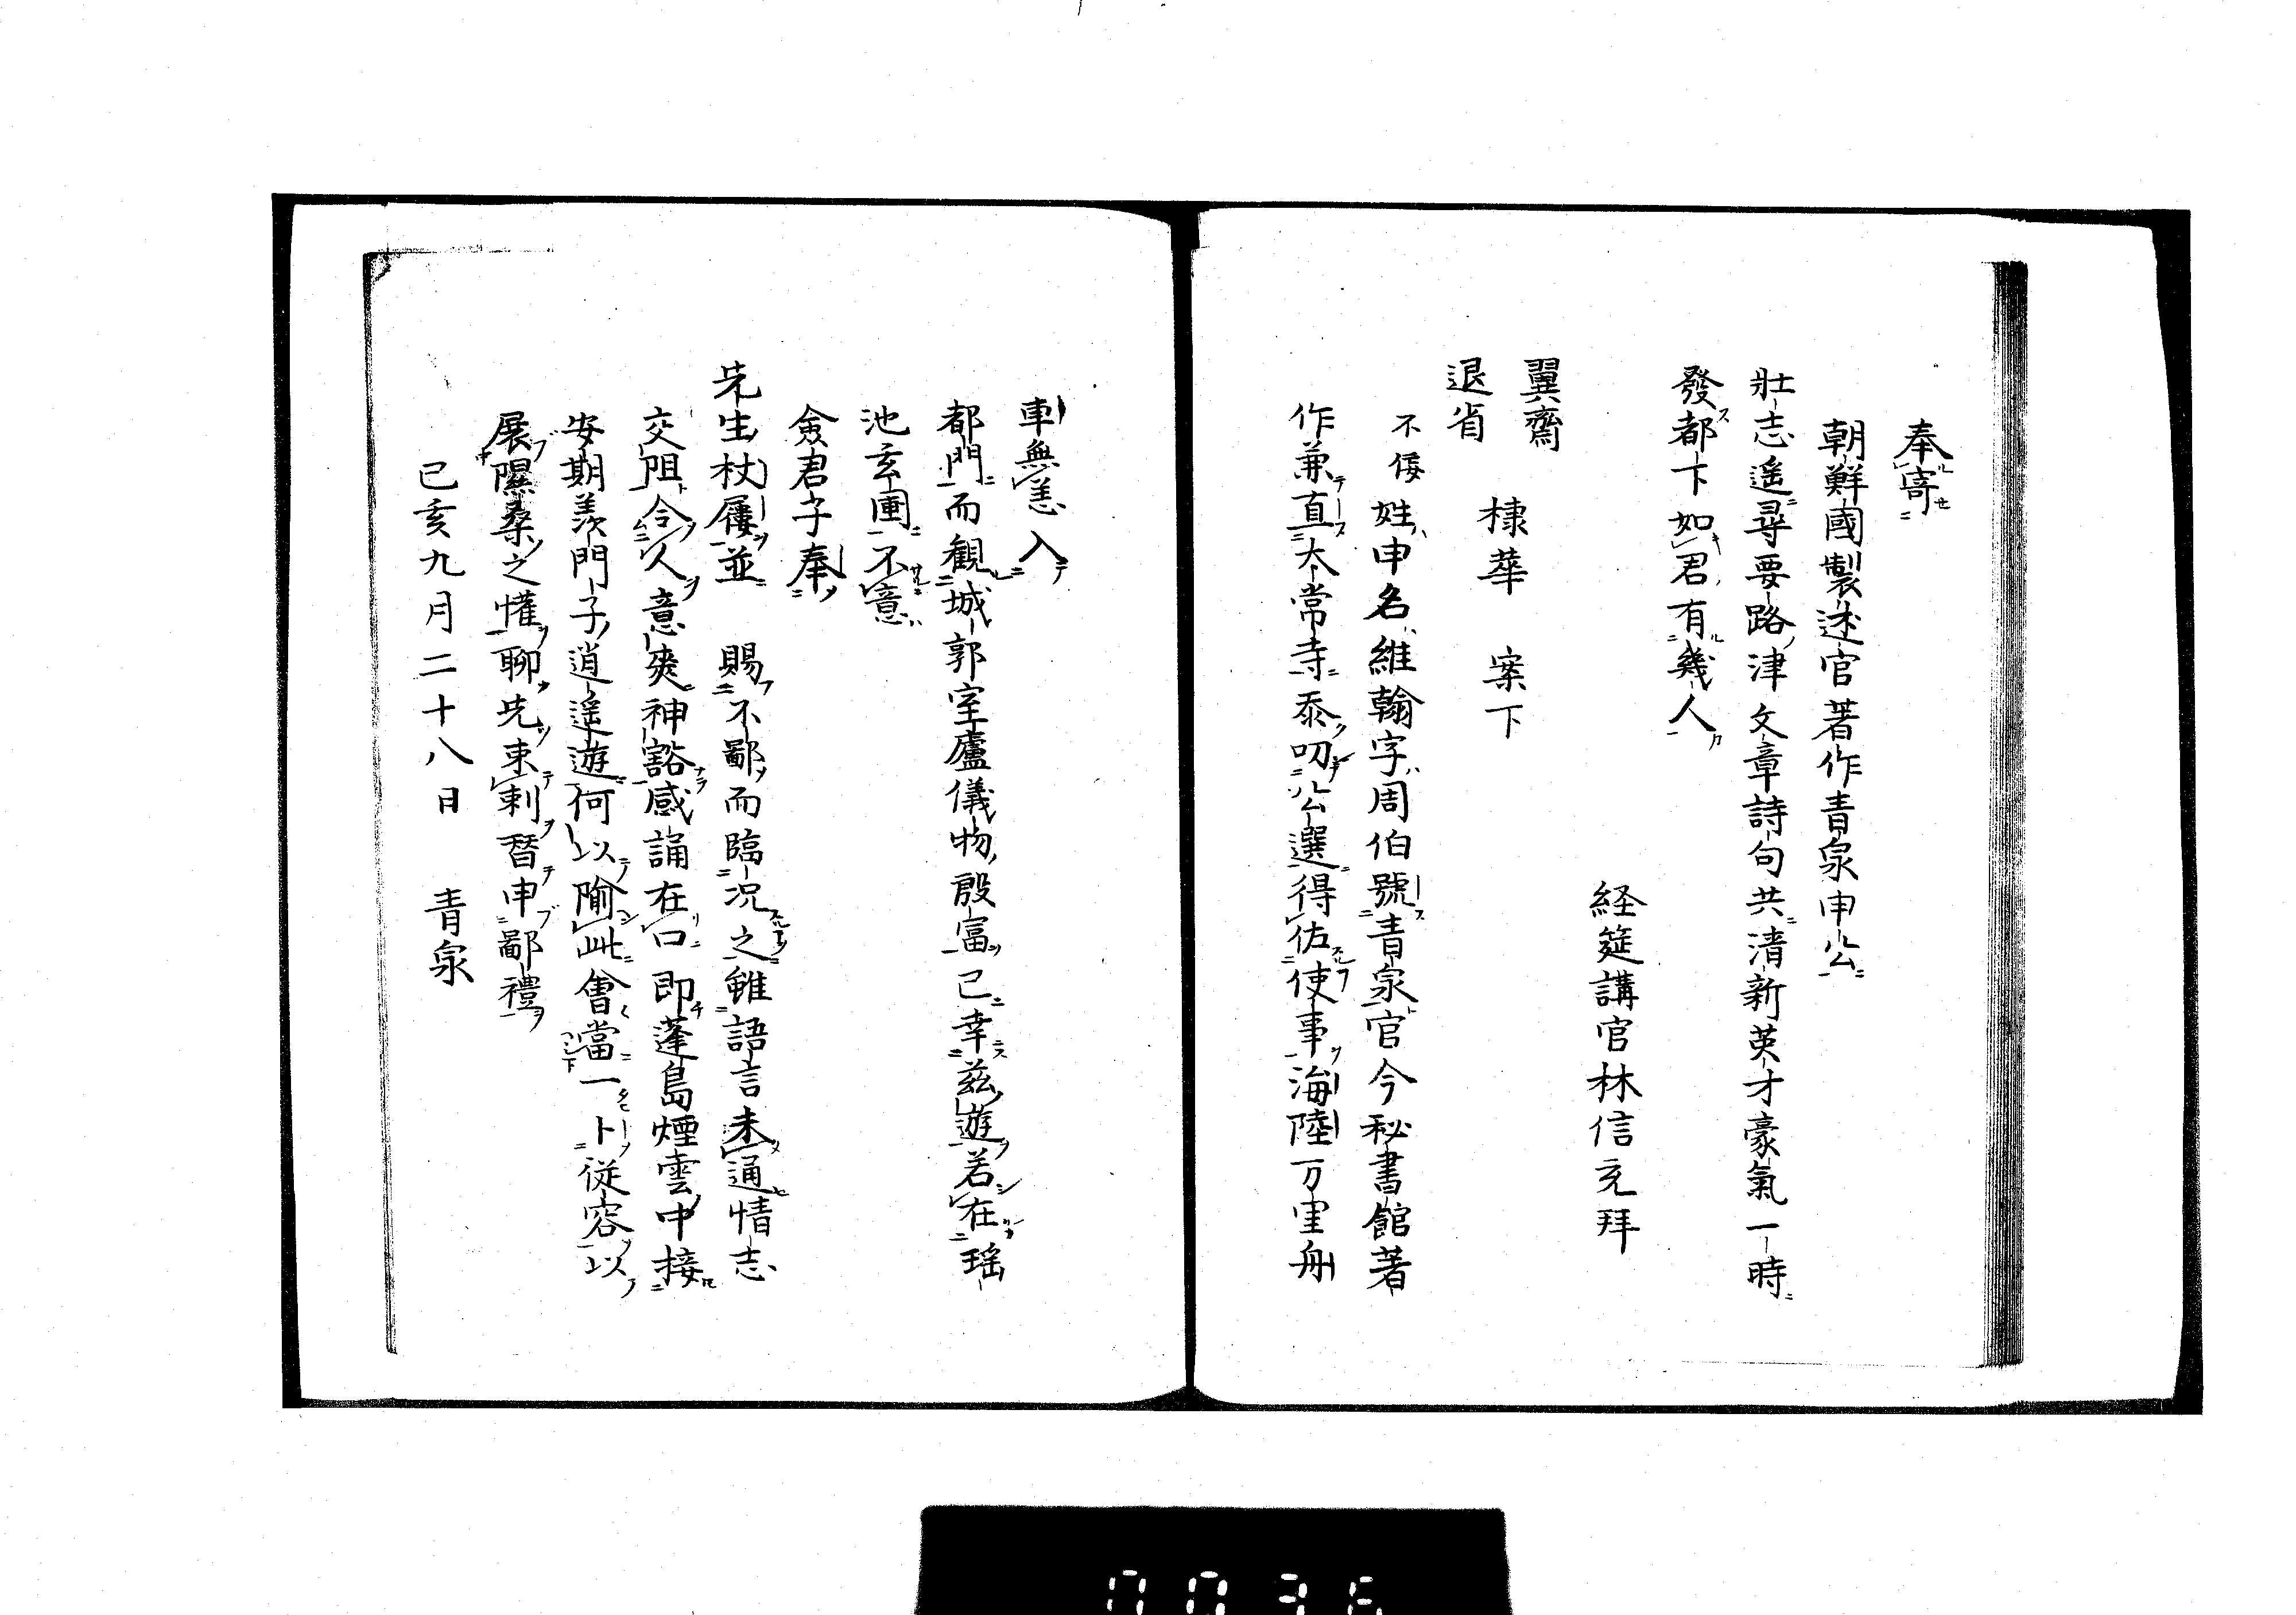 奉寄
朝鮮國製述官著作青泉申公
壯志遙尋要路津文章詩句共清新英才豪氣一時
發都下如君有幾人
経筵講官林信充拜
翼齋
棣華 案下
退省
不佞姓申名維翰字周伯號青泉官今秘書館著
作兼直太常寺忝叨公選得佐使事海陸万里舟
車無恙入
都門而觀城郭室廬儀物殷富已幸茲遊若在瑤
池玄圃不意
僉君子奉
先生杖屨並 賜不鄙而臨况之雖語言未通情志
交阻令人意爽神豁感誦在口即蓬島煙雲中接
安期羨門子逍遙遊何以隃此會當一卜従容以
展隰桑之懽聊先束剌暜申鄙禮
己亥九月二十八日 青泉